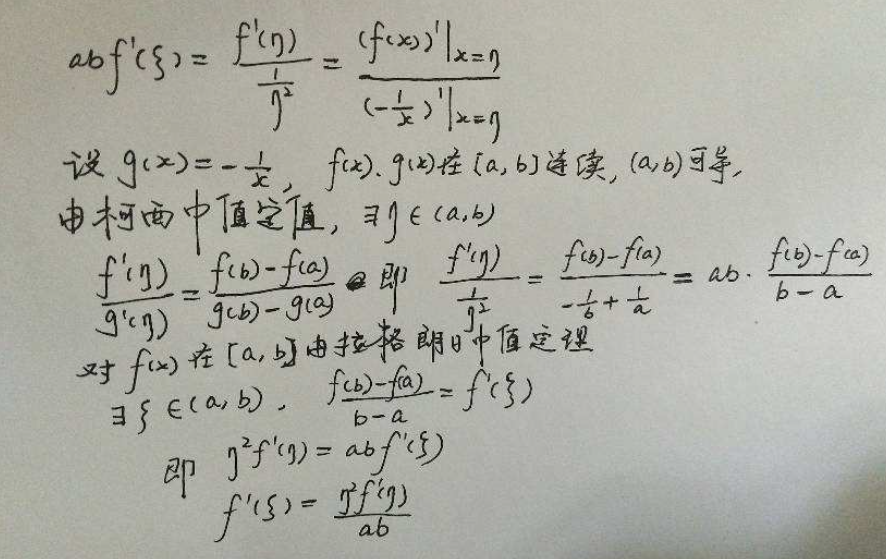 abf'(ξ) = f'(η)/(1/η²) = (f(x))'|x=η / (-1/x)'|x=η
设 g(x) = -1/x, f(x)、g(x)在[a,b]连续, (a,b)可导,
由柯西中值定值, ∃η∈(a,b)
f'(η)/g'(η) = (f(b)-f(a))/(g(b)-g(a)) 即 f'(η)/(1/η²) = (f(b)-f(a))/(-1/b+1/a) = ab·(f(b)-f(a))/(b-a)
对f(x)在[a,b]由拉格朗日中值定理
∃ξ∈(a,b), (f(b)-f(a))/(b-a) = f'(ξ)
即 η²f'(η) = abf'(ξ)
f'(ξ) = η²f'(η)/ab